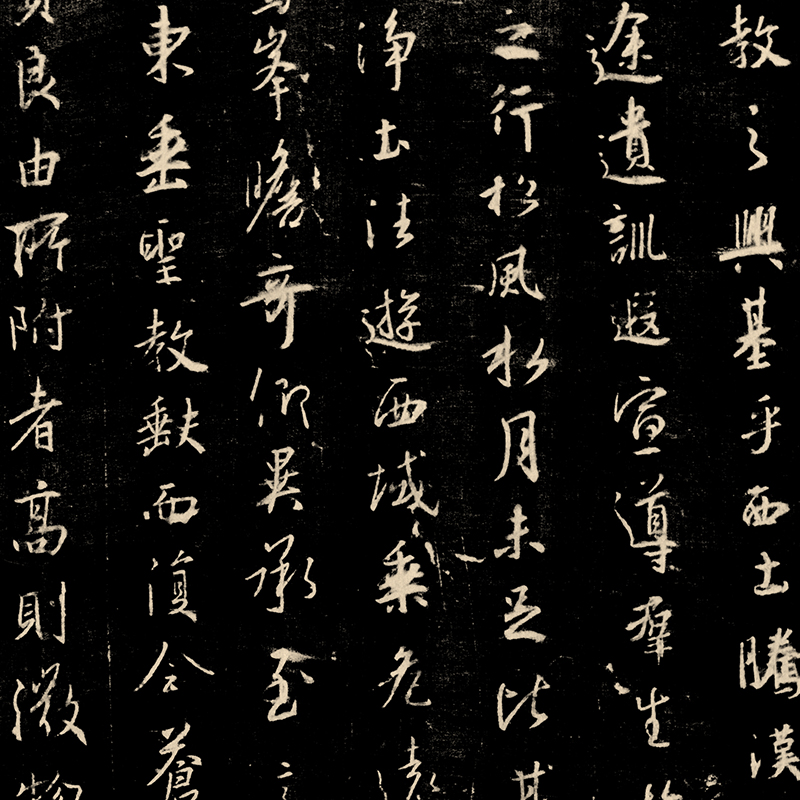 教之興基乎西土騰漢
途遺訓遐宣導群生
之行松風水月未足比其
淨土法遊西域乘危遠
峯瞻奇仰異承至言
東垂聖教缺而復全蒼
良由所附者高則微物